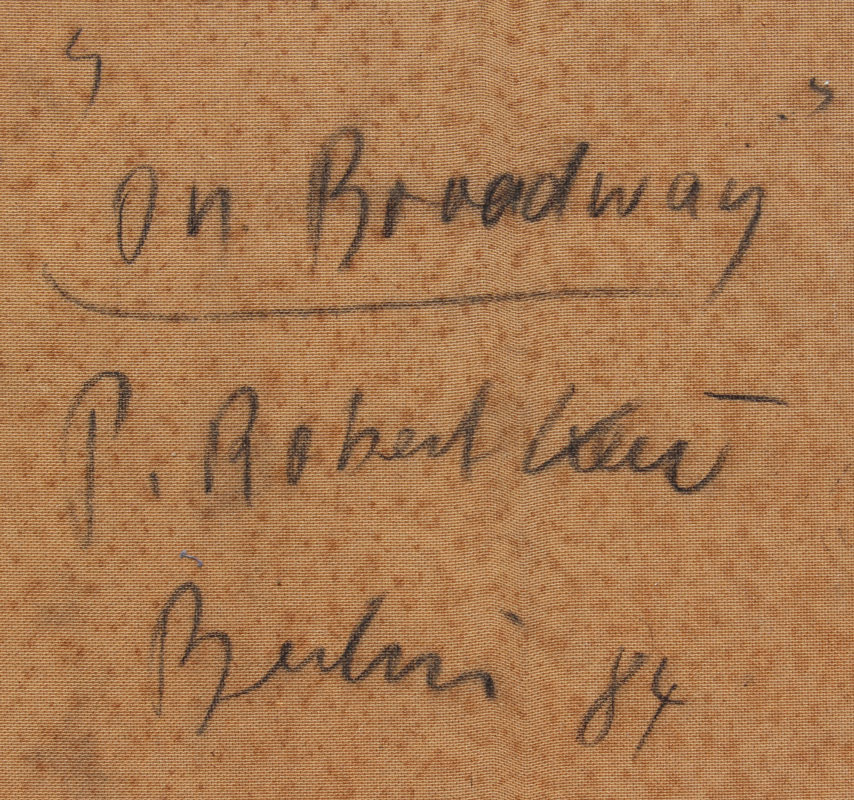 "On Broadway"
P. Robert Keil
Berlin 84